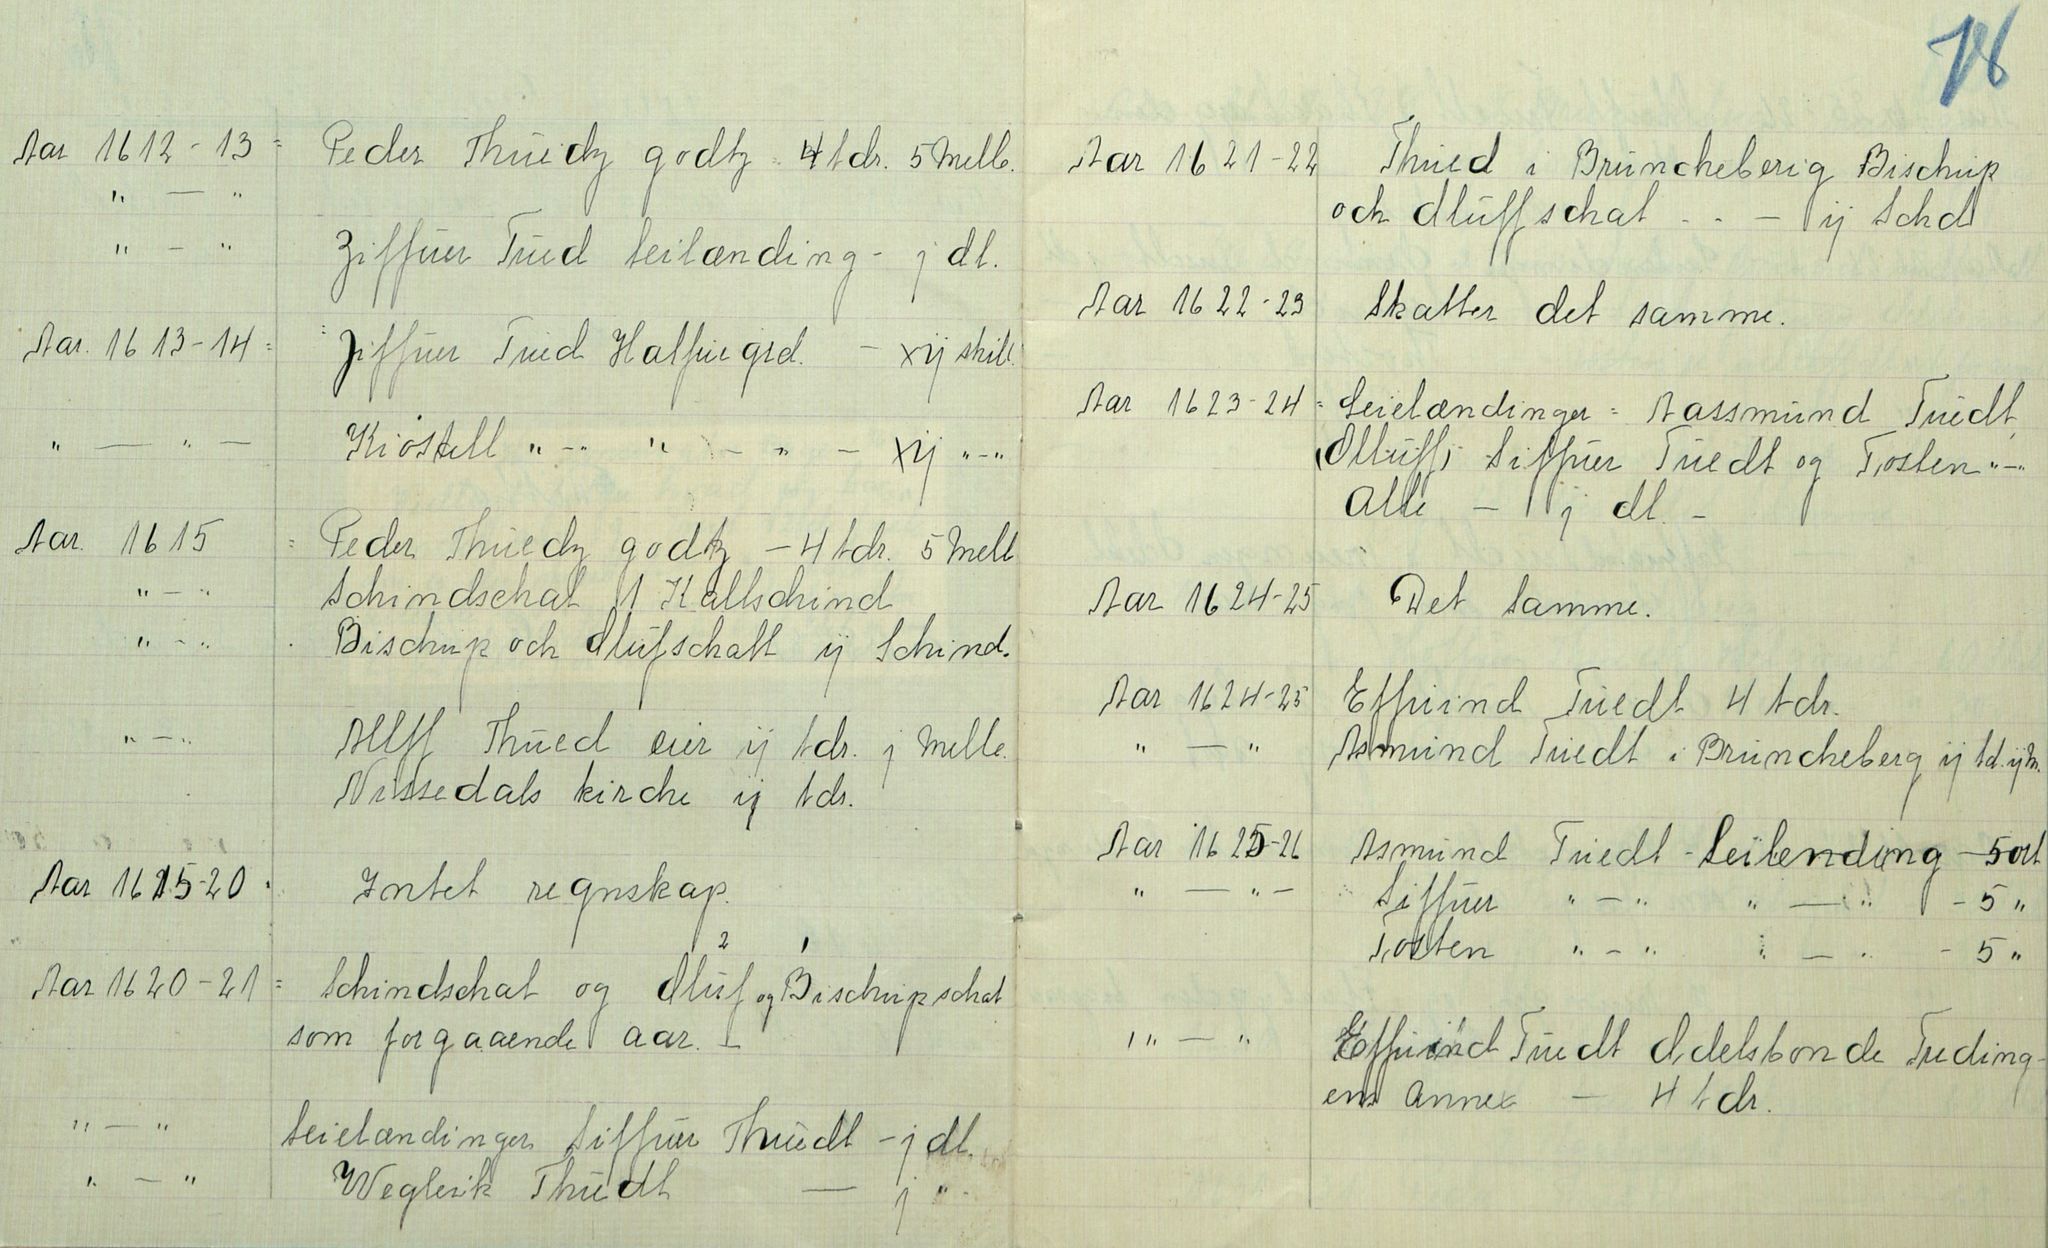 18
Aar 1612-13 = Peder Thuedz godtz = 4 tdr. 5 Mell.
" — "
" — " Ziffuer Tued leilænding - j dl.
Aar. 1613-14 = Ziffuer Tued Halffue grd. — xij skill.
" — " — Kiøstell " -- " - " — xij "-"
Aar. 1615 = Peder Thuedz godtz — 4 tdr. 5 Mell
" — " Schindschat 1 Kalfschind
" — " Bischup och Olufschatt ij Schind.
" — " Allff Thued eier ij tdr. j Melle.
Nissedals kirche ij tdr.
Aar 1615-20 Intet regnskap.
2 1
Aar 1620-21 = Schindschat og Oluf og Bischupschat
som forgaaende aar. —
" — " Leielændinger Siffuer Thuedt - j dl.
" — " Weglerik Thuedt — j "
Aar 1621-22 Thued i Bruncheberig Bischup
och Oluffschat . . — ij Schd
Aar 1622-23 Skatter det samme.
Aar 1623-24 = Leielændinger = Aassmund Tuedt,
Olluff, Siffuer Tuedt og Tosten "-"
Alle — j dl. -
Aar 1624-25 Det samme.
Aar 1624-25 Effuind Tuedt 4 tdr.
" — " Asmund Tuedt i Bruncheberg ij td. ij M.
Aar 1625-26 Asmund Tuedt - Leilending — 5 ort
" — " — Siffuer " — " " — " - 5 "
Tosten " — " " — " - 5 "
" — " Effuind Tuedt Odelsbonde Treding-
ens annex — 4 tdr.